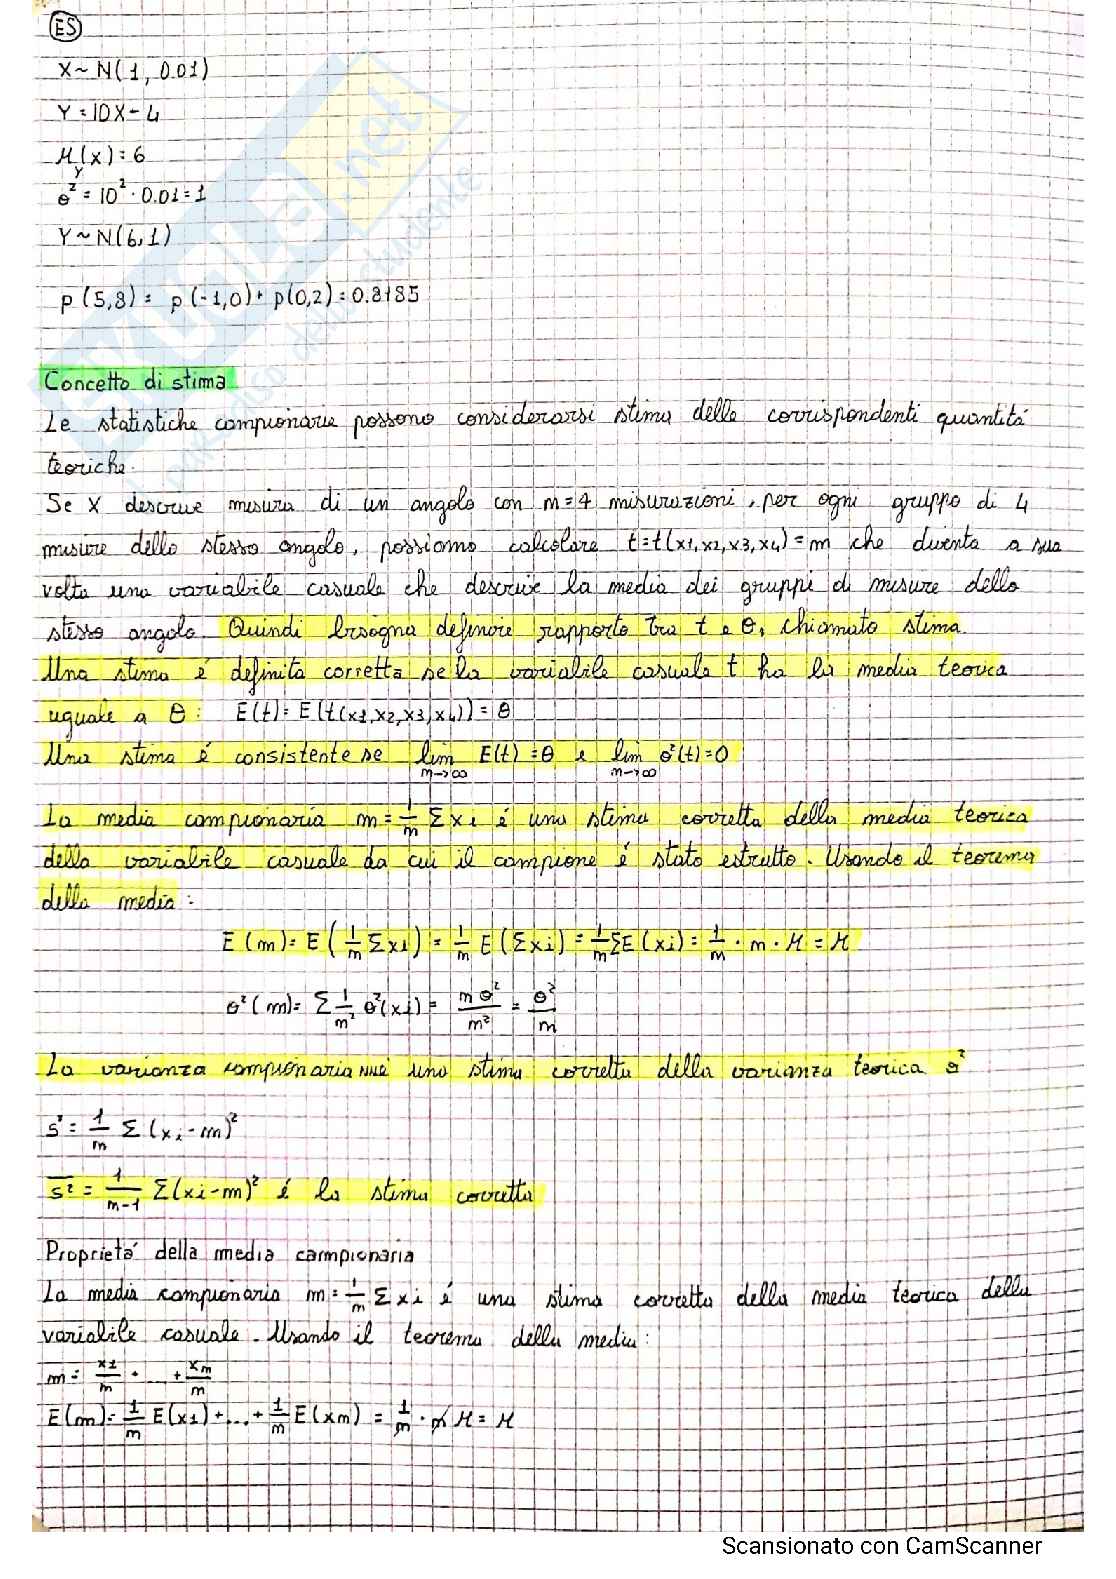 ES
X~N(1, 0.01)
Y = 10X - 4
μ_Y(x) = 6
σ² = 10² · 0.01 = 1
Y~N(6,1)
p(5,8) = p(-1,0) + p(0,2) = 0.8185
Concetto di stima
Le statistiche campionarie possono considerarsi stima delle corrispondenti quantità
teoriche.
Se X descrive misura di un angolo con m=4 misurazioni, per ogni gruppo di 4
misure dello stesso angolo, possiamo calcolare t=t(x1,x2,x3,x4)=m che diventa a sua
volta una variabile casuale che descrive la media dei gruppi di misure dello
stesso angolo. Quindi bisogna definire rapporto tra t e θ, chiamato stima.
Una stima é definita corretta se la variabile casuale t ha la media teorica
uguale a θ: E(t) = E(t(x1,x2,x3,x4)) = θ
Una stima é consistente se lim m→∞ E(t) = θ e lim m→∞ σ²(t) = 0
La media campionaria m = 1/m Σxi é una stima corretta della media teorica
della variabile casuale da cui il campione é stato estratto. Usando il teorema
della media:
E(m) = E(1/m Σxi) = 1/m E(Σxi) = 1/m ΣE(xi) = 1/m · m · μ = μ
σ²(m) = Σ 1/m² σ²(xi) = mσ²/m² = σ²/m
La varianza campionaria una stima corretta della varianza teorica σ²
s² = 1/m Σ(xi - m)²
s² = 1/m-1 Σ(xi - m)² é la stima corretta
Proprietá della media campionaria
La media campionaria m = 1/m Σxi é una stima corretta della media teorica della
variabile casuale. Usando il teorema della media:
m = x1/m + ... + xm/m
E(m) = 1/m E(x1) + ... + 1/m E(xm) = 1/m · m μ = μ
Scansionato con CamScanner